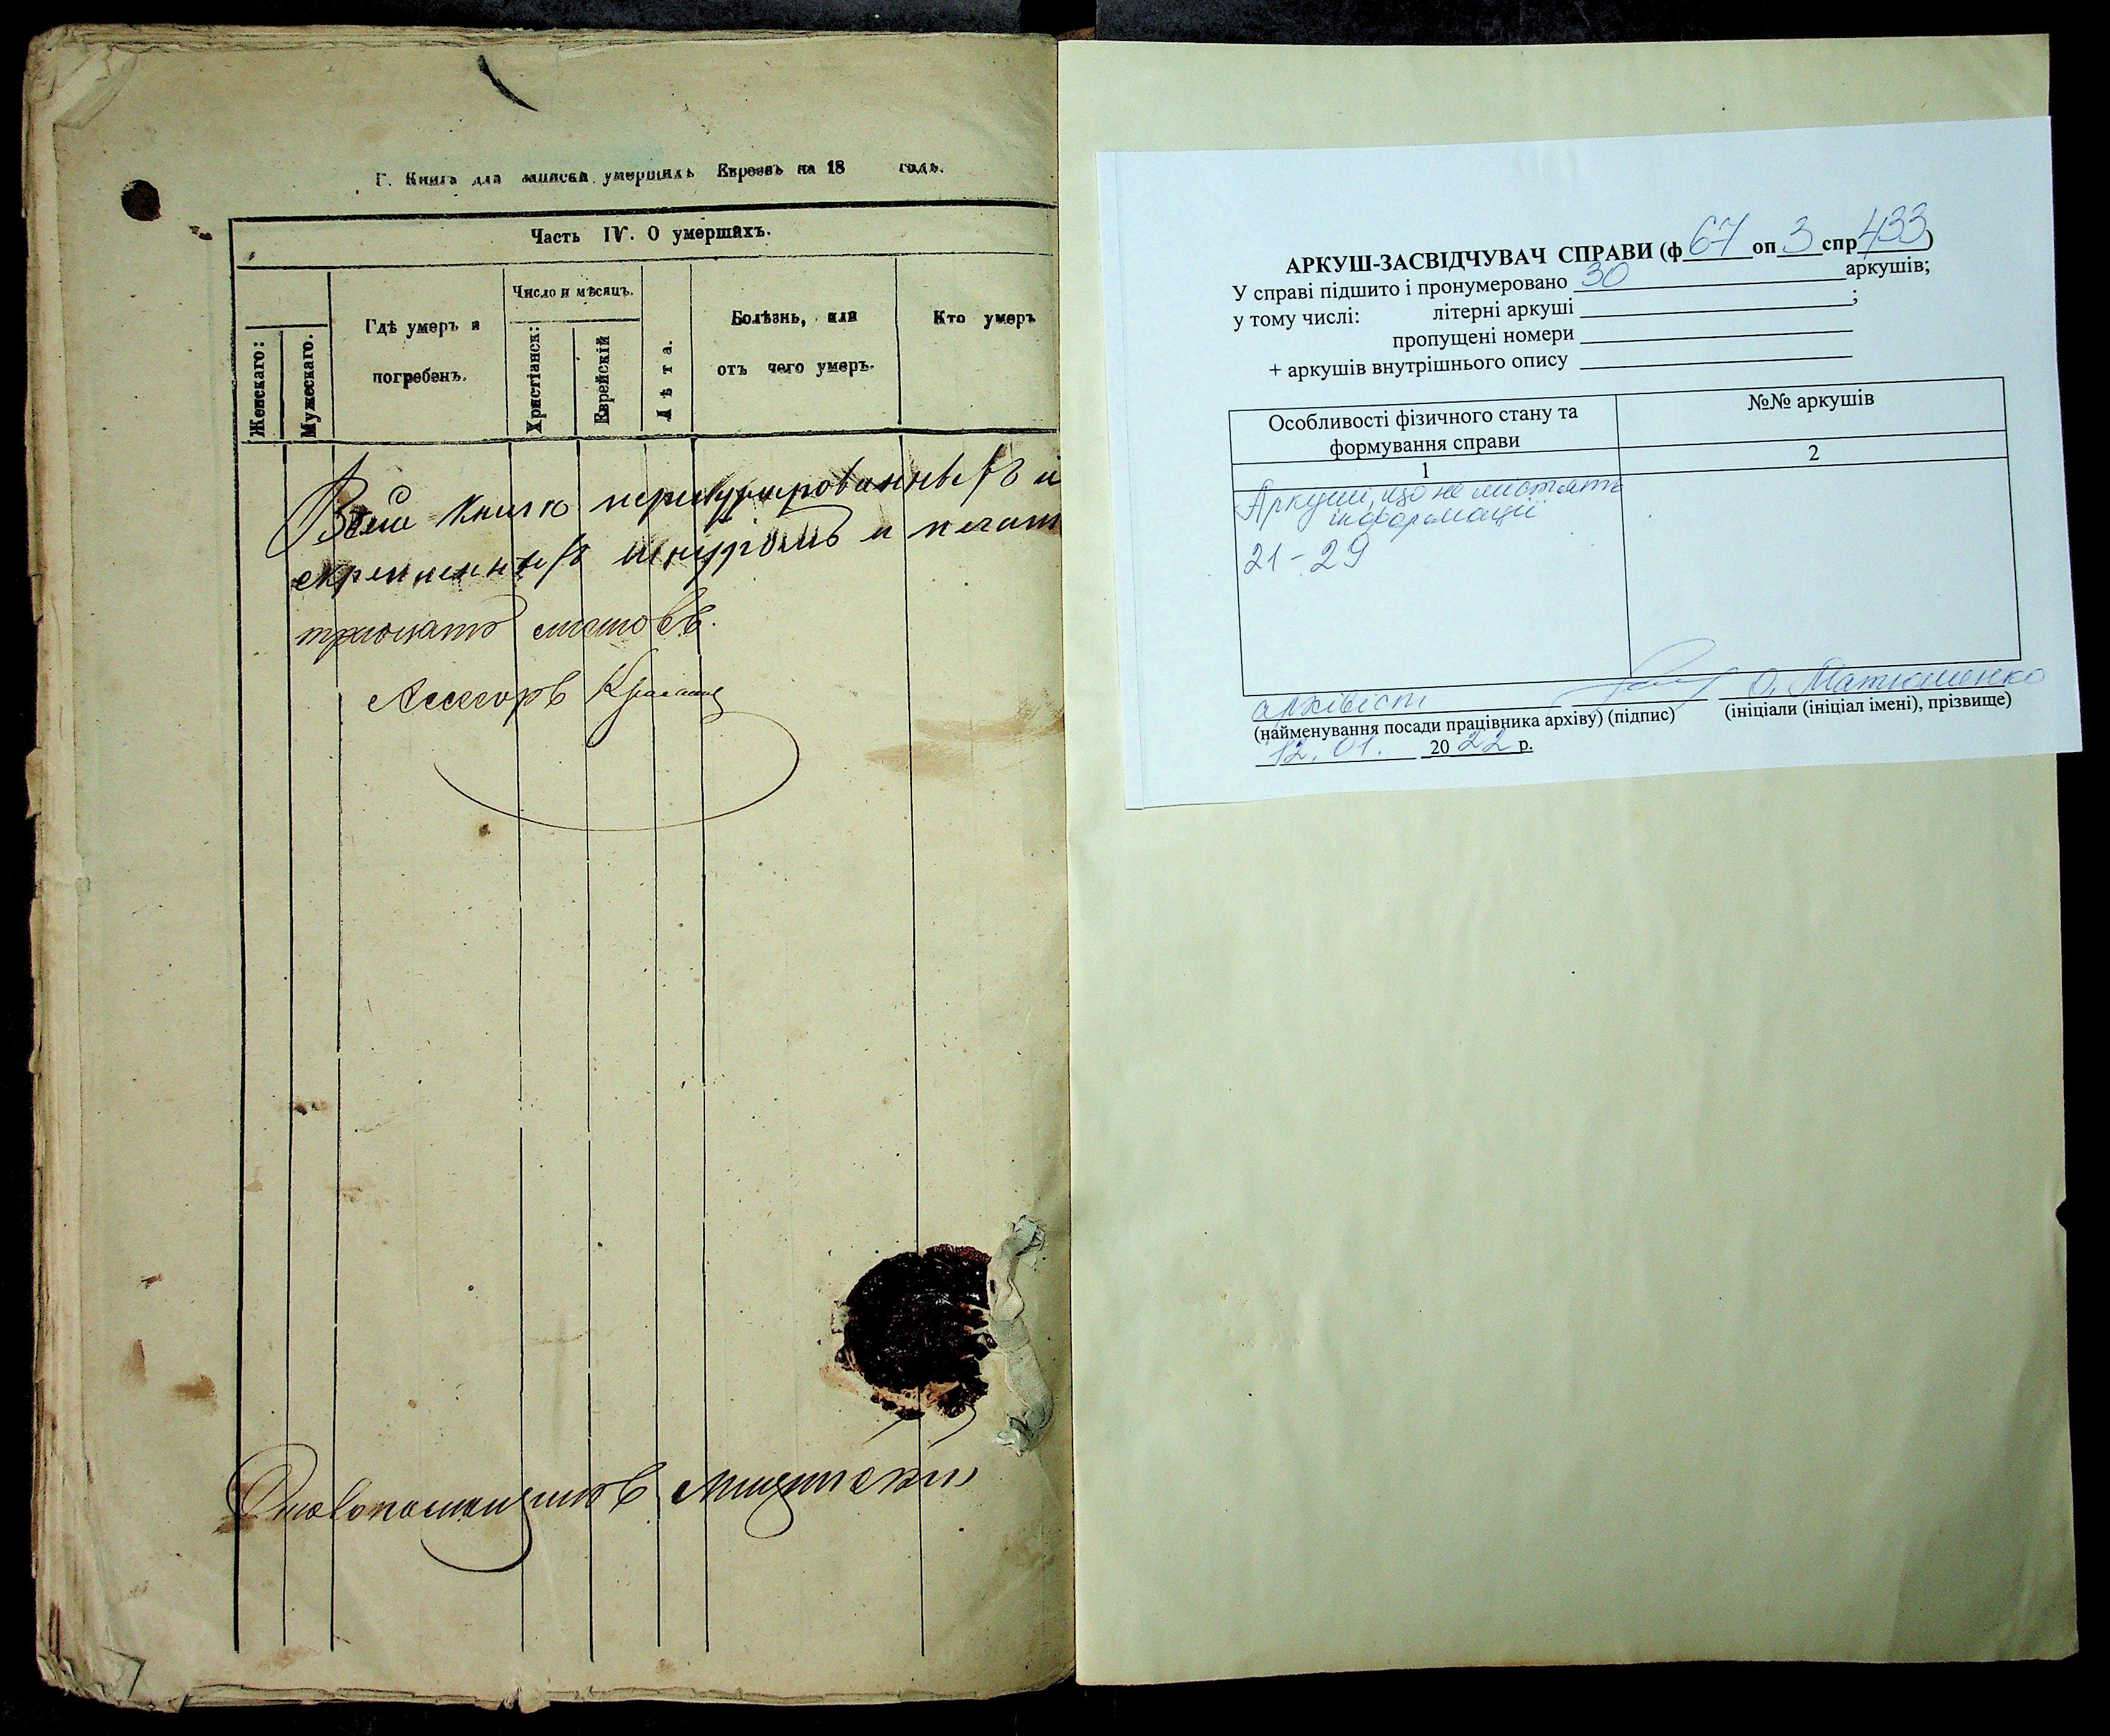 Г. Книга для записки умершихъ Евреевъ на 18 годъ.
Часть IV. О умершихъ.
Женскаго:
Мужескаго.
Гдѣ умеръ и
погребенъ.
Число и мѣсяцъ.
Христіанск:
Еврейскій
Лѣта.
Болѣзнь, или
отъ чего умеръ.
Кто умеръ
Въ сей книгѣ и
скрепленныхъ шнуромъ и печат
тридцать листовъ.
Асесоръ
АРКУШ-ЗАСВІДЧУВАЧ СПРАВИ (ф 67 оп 3 спр 433)
У справі підшито і пронумеровано 30 аркушів;
у тому числі: літерні аркуші ;
пропущені номери
+ аркушів внутрішнього опису
Особливості фізичного стану та
формування справи
№№ аркушів
1
2
Аркуші, що не містять
інформації
21-29
архівіст О. Матюшенко
(найменування посади працівника архіву) (підпис) (ініціали (ініціал імені), прізвище)
12. 01. 2022 р.